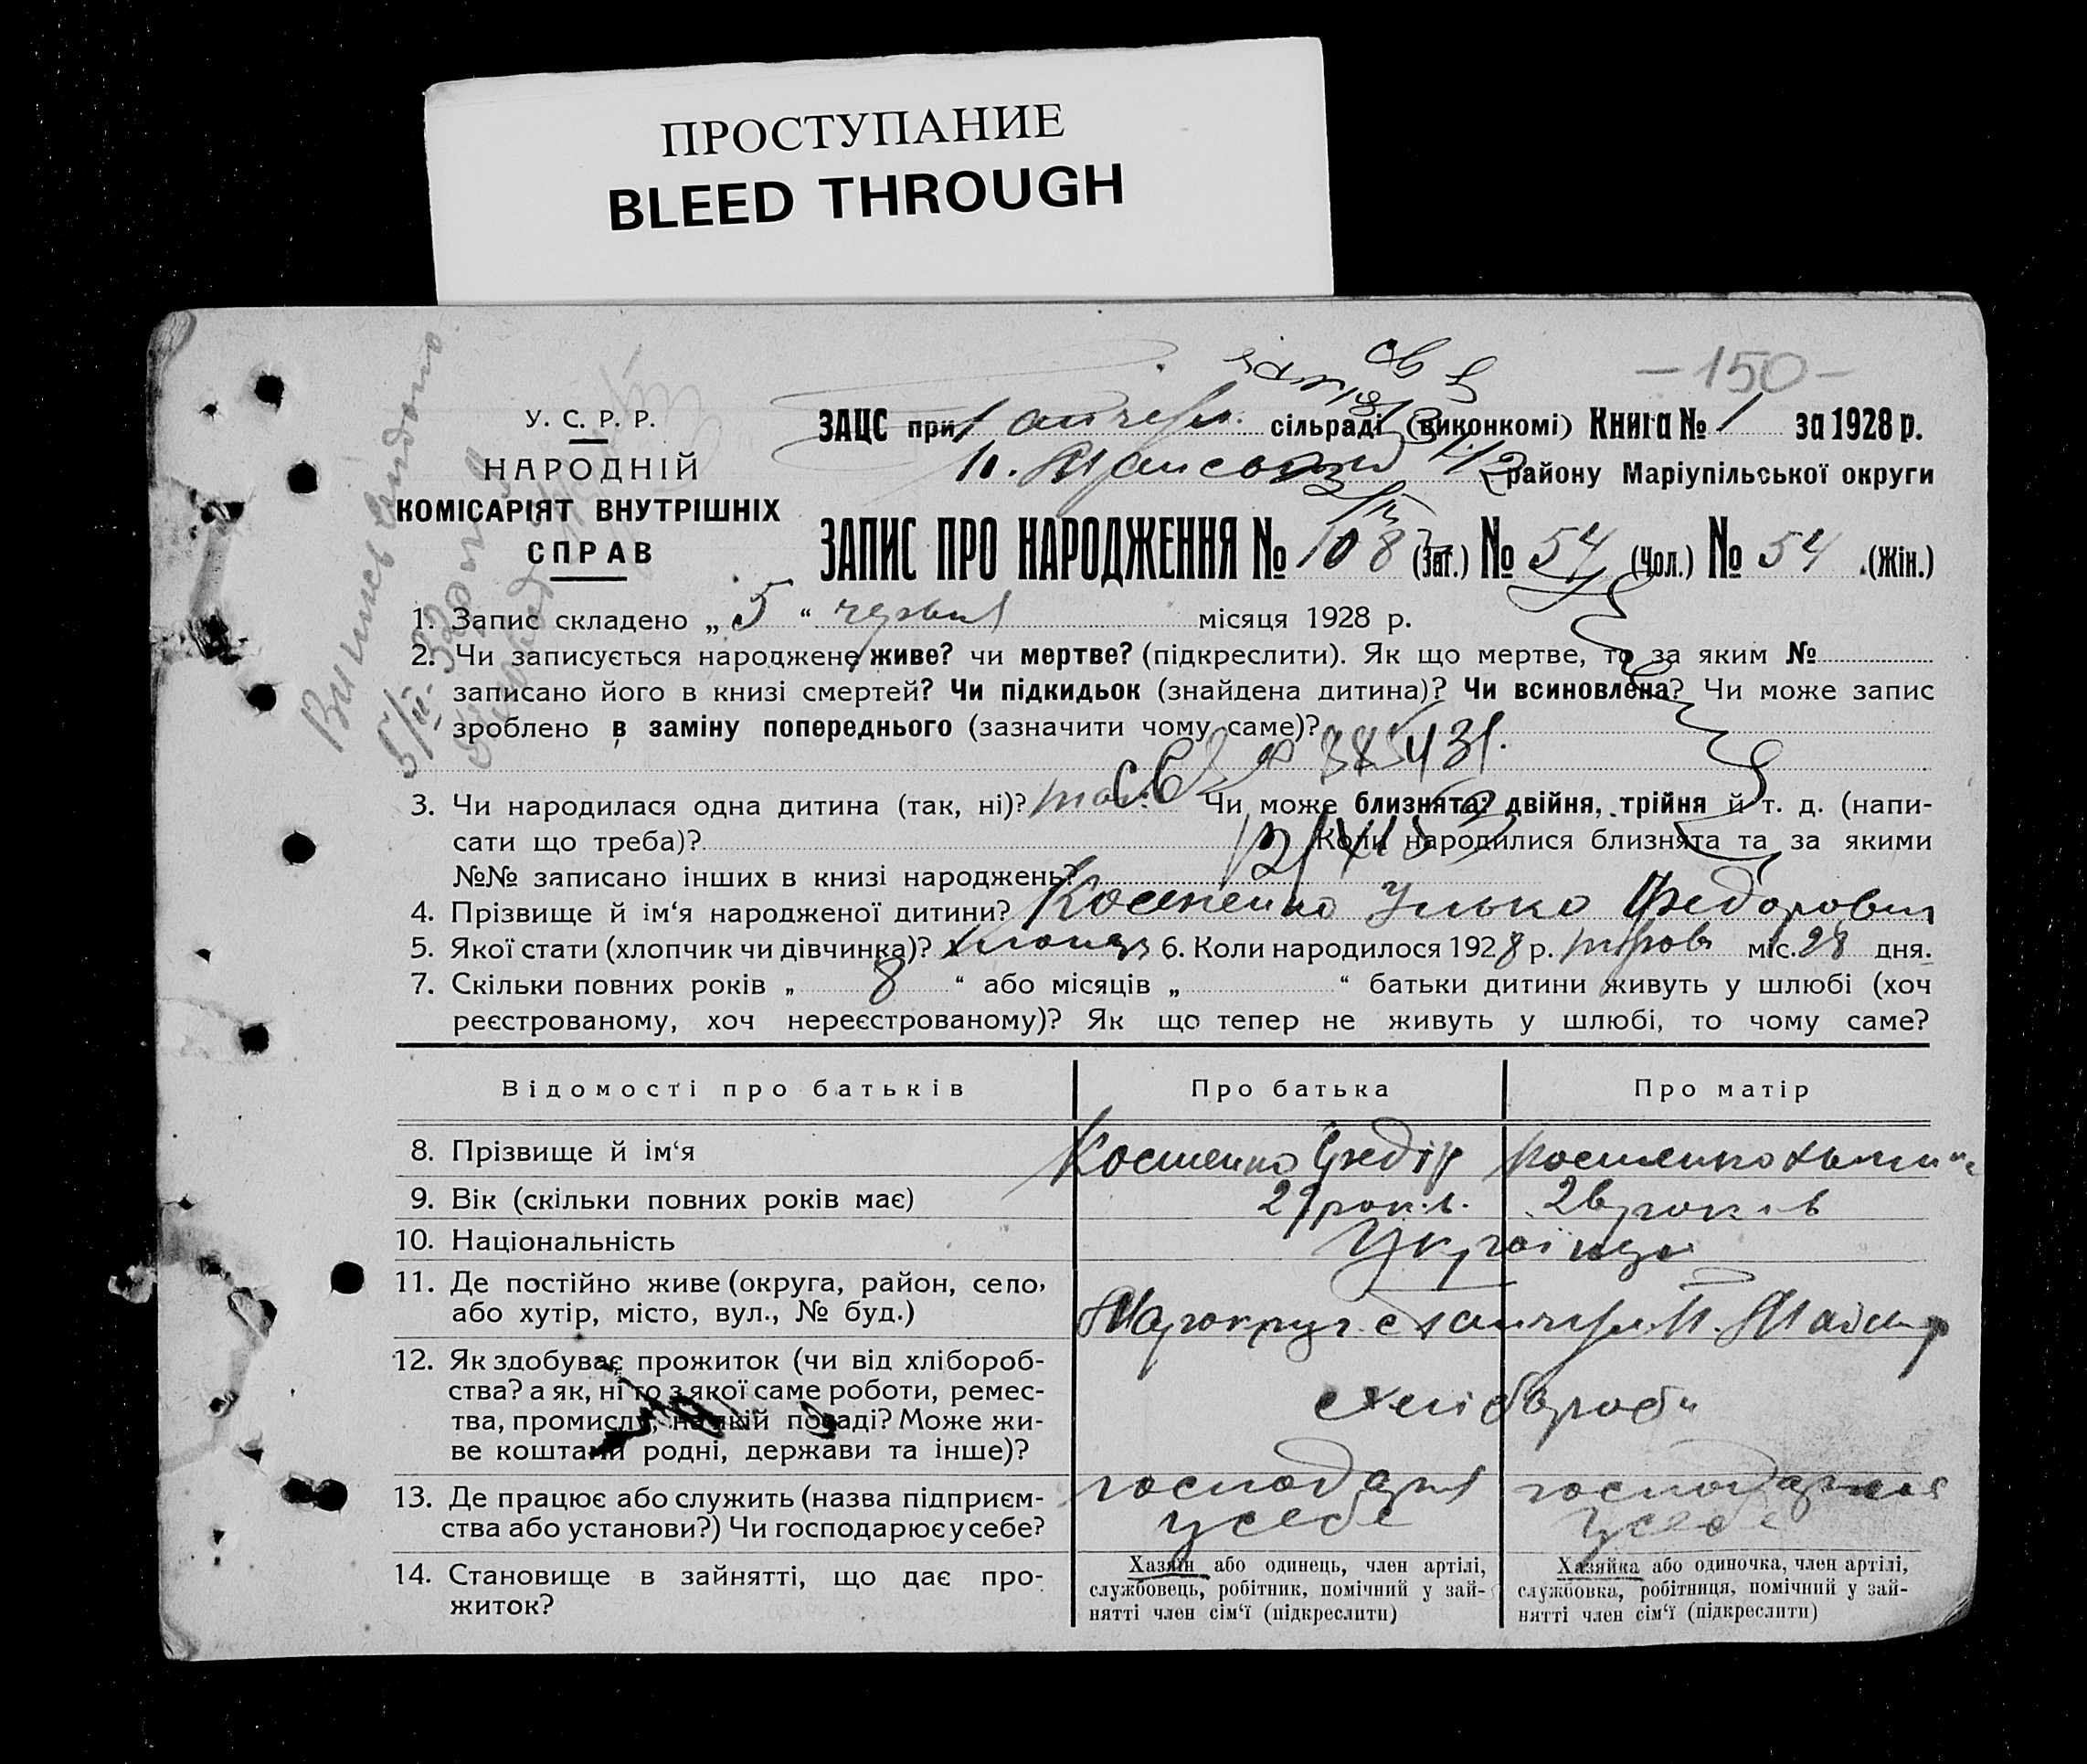 ПРОСТУПАНИЕ
BLEED THROUGH
— 150 —
У. С. Р. Р.
НАРОДНІЙ
КОМІСАРІЯТ ВНУТРІШНІХ
СПРАВ
ЗАЦС при сільраді (виконкомі) Книга № 1 за 1928 р.
району Маріупільської округи
ЗАПИС ПРО НАРОДЖЕННЯ № 108 (Заг.) № 54 (Чол.) № 54 (Жін.)
1. Запис складено „ 5 “ червня місяця 1928 р.
2. Чи записується народжене живе? чи мертве? (підкреслити). Як що мертве, то за яким №
записано його в книзі смертей? Чи підкидьок (знайдена дитина)? Чи всиновлена? Чи може запис
зроблено в заміну попереднього (зазначити чому саме)?
3. Чи народилася одна дитина (так, ні)? так Чи може близнята? двійня, трійня й т. д. (напи-
сати що треба)? Коли народилися близнята та за якими
№№ записано інших в книзі народжень?
4. Прізвище й ім‘я народженої дитини? Костенко Улько Федорович
5. Якої стати (хлопчик чи дівчинка)? хлопец 6. Коли народилося 1928 р. трав міс. 28 дня.
7. Скільки повних років „ 8 “ або місяців „ “ батьки дитини живуть у шлюбі (хоч
реєстрованому, хоч нереєстрованому)? Як що тепер не живуть у шлюбі, то чому саме?
Відомості про батьків Про батька Про матір
8. Прізвище й ім‘я Костенко Федір Костенко
9. Вік (скільки повних років має) 29 рок.в. 26 років
10. Національність Українци
11. Де постійно живе (округа, район, село,
або хутір, місто, вул., № буд.)
12. Як здобуває прожиток (чи від хлібороб-
ства? а як, ні то з якої саме роботи, ремес-
тва, промислу, на якій посаді? Може жи-
ве коштами родні, держави та інше)?
хлібороби
13. Де працює або служить (назва підприєм-
ства або установи?) Чи господарює у себе?
господаря у себе
у себе
14. Становище в зайнятті, що дає про-
житок?
Хазяїн або одинець, член артілі,
службовець, робітник, помічний у зай-
нятті член сім‘ї (підкреслити)
Хазяйка або одиночка, член артілі,
службовка, робітниця, помічний у зай-
нятті член сім‘ї (підкреслити)